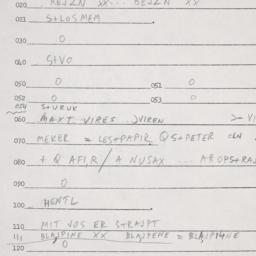 020 BEJZN XX... BEJZN XX
021 S+LOSMEM
030 0
040 S+VO
050 0 051 0
052 0 053 0
054 S+URUK
060 MAXT VIRES JVIREN
070 MEKER = LES+PAPIR QS+PETER
080 + Q AFIR/A NUSAX ...
090 0
100 HENTL
110 MIT VOS ER S+RAJPT
111 BLAJPINE XX BLAJPENE = BLAJPINE
120 0